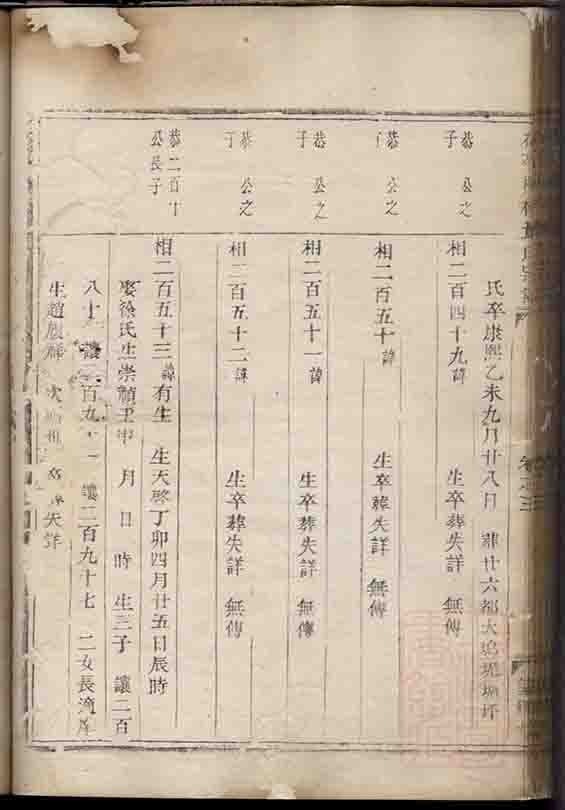 氏卒康熙乙未九月廿八日 葬廿六都大塢坭塘坪
恭 公之
子
相二百四十九諱 生卒葬失詳 無傳
恭 公之
子
相二百五十諱 生卒葬失詳 無傳
恭 公之
子
相二百五十一諱 生卒葬失詳 無傳
恭 公之
子
相二百五十二諱 生卒葬失詳 無傳
恭二百十
公長子
相二百五十三諱有生 生天啓丁卯四月廿五日辰時
娶徐氏生崇禎壬申 月 日 時 生三子 讓二百
八十 讓二百九十 讓二百九十七 二女長適
生趙 失詳
卷之三